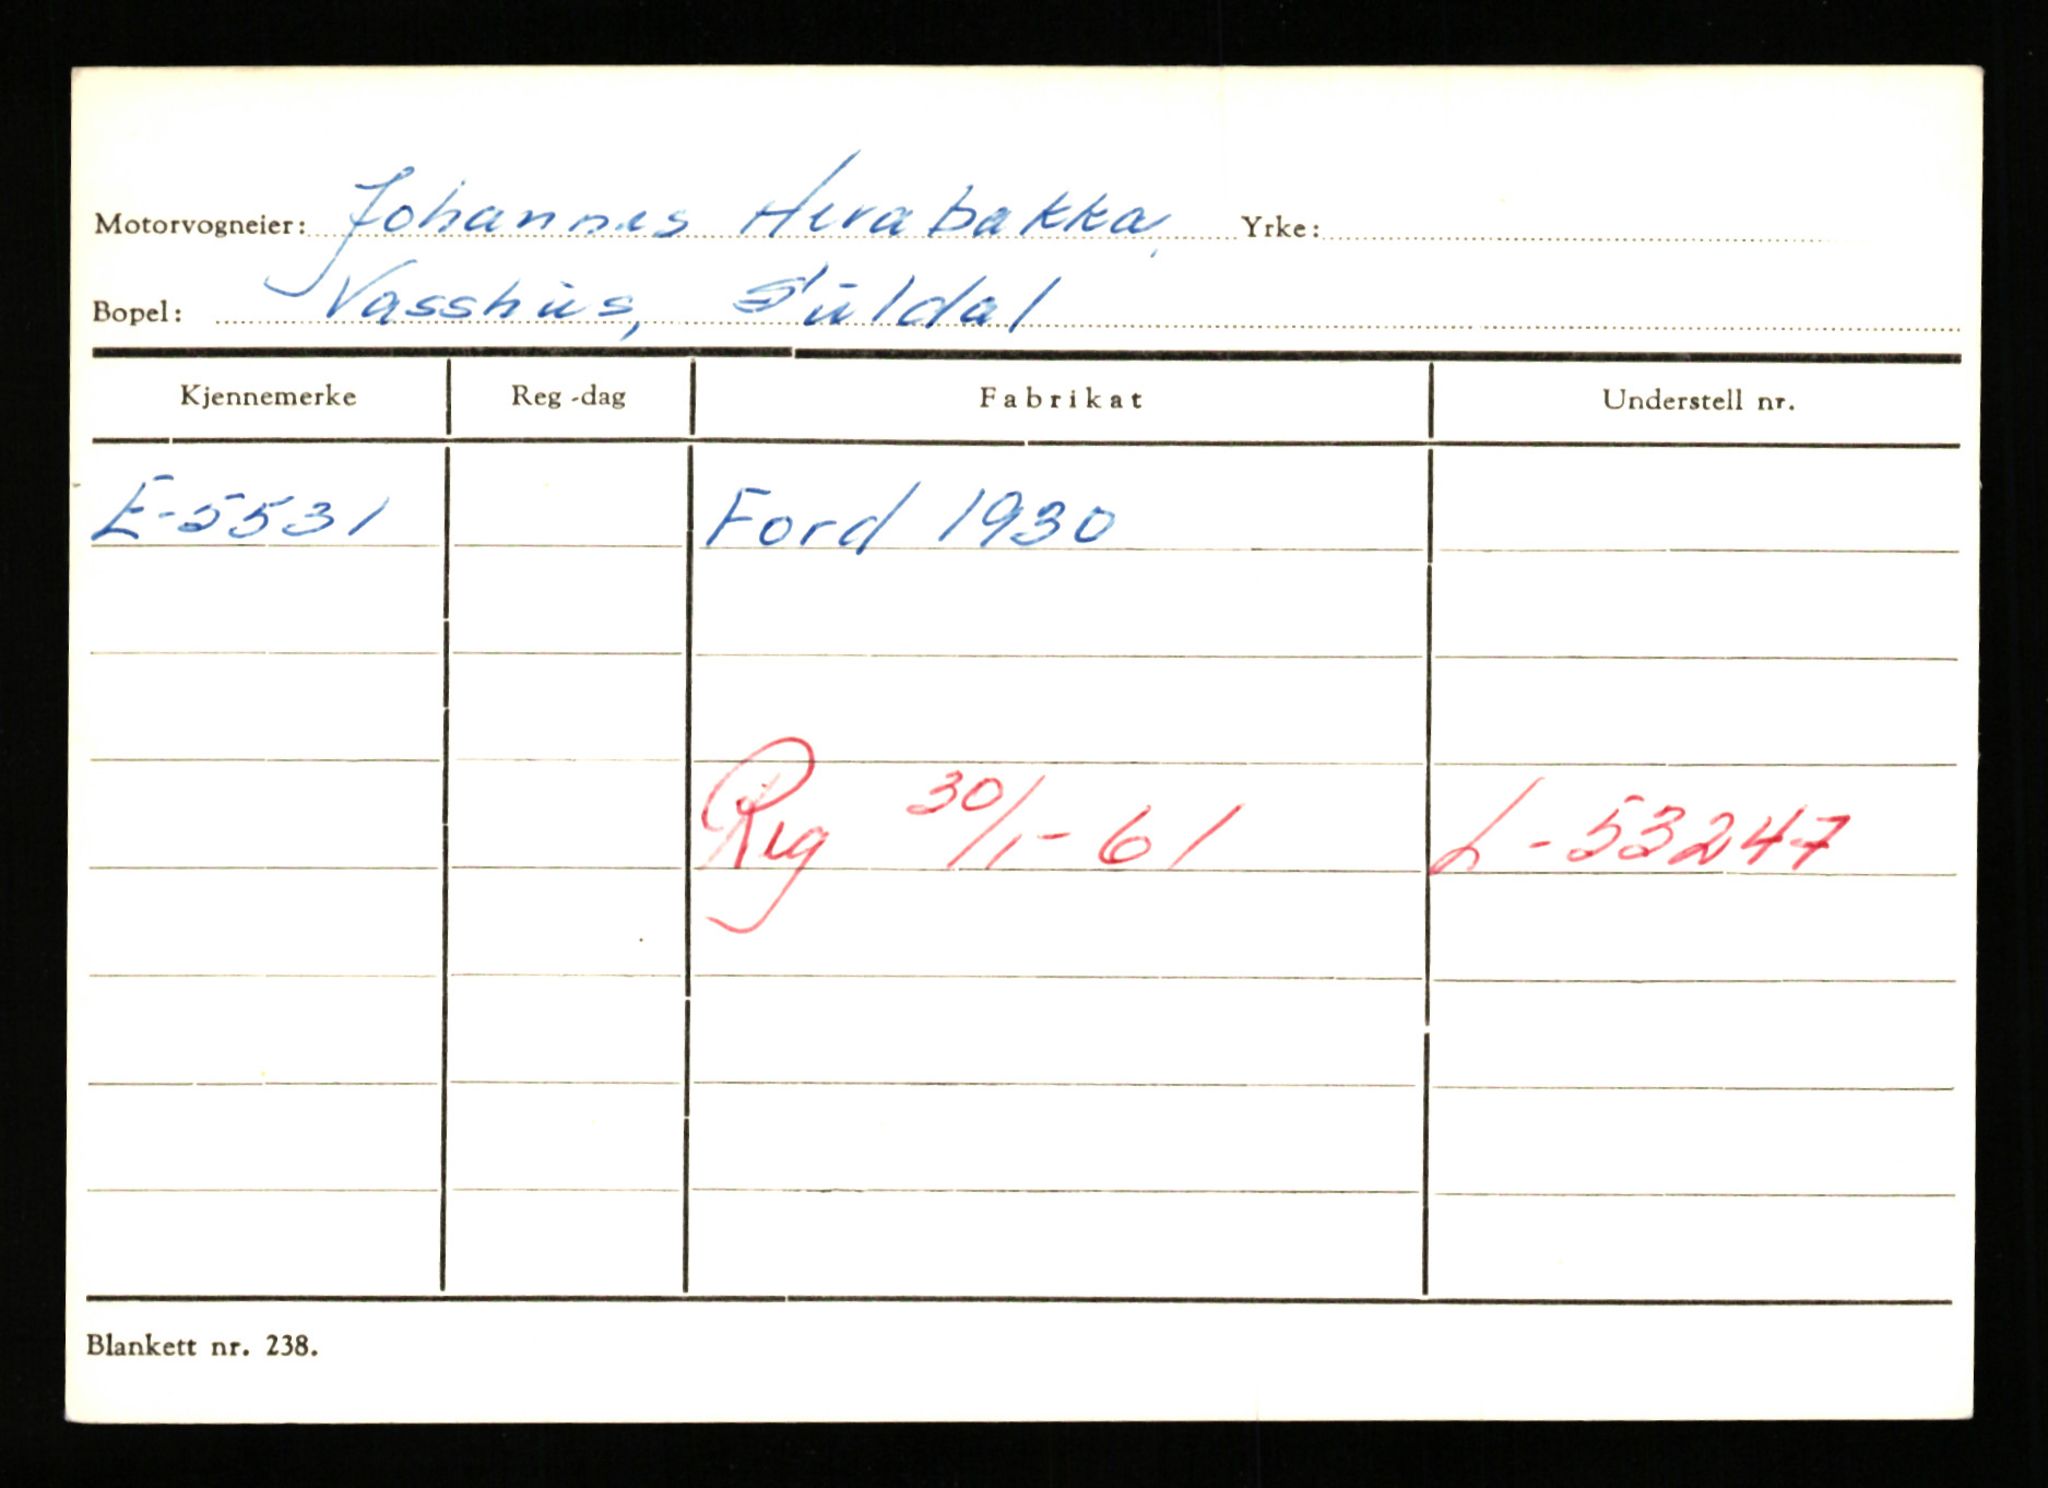 Motorvogneier: Johannes Herabakka, Yrke:
Bopel: Vasshus, Suldal
Kjennemerke Reg-dag Fabrikat Understell nr.
E-5531 Ford 1930
Reg 30/1-61 L-53247
Blankett nr. 238.